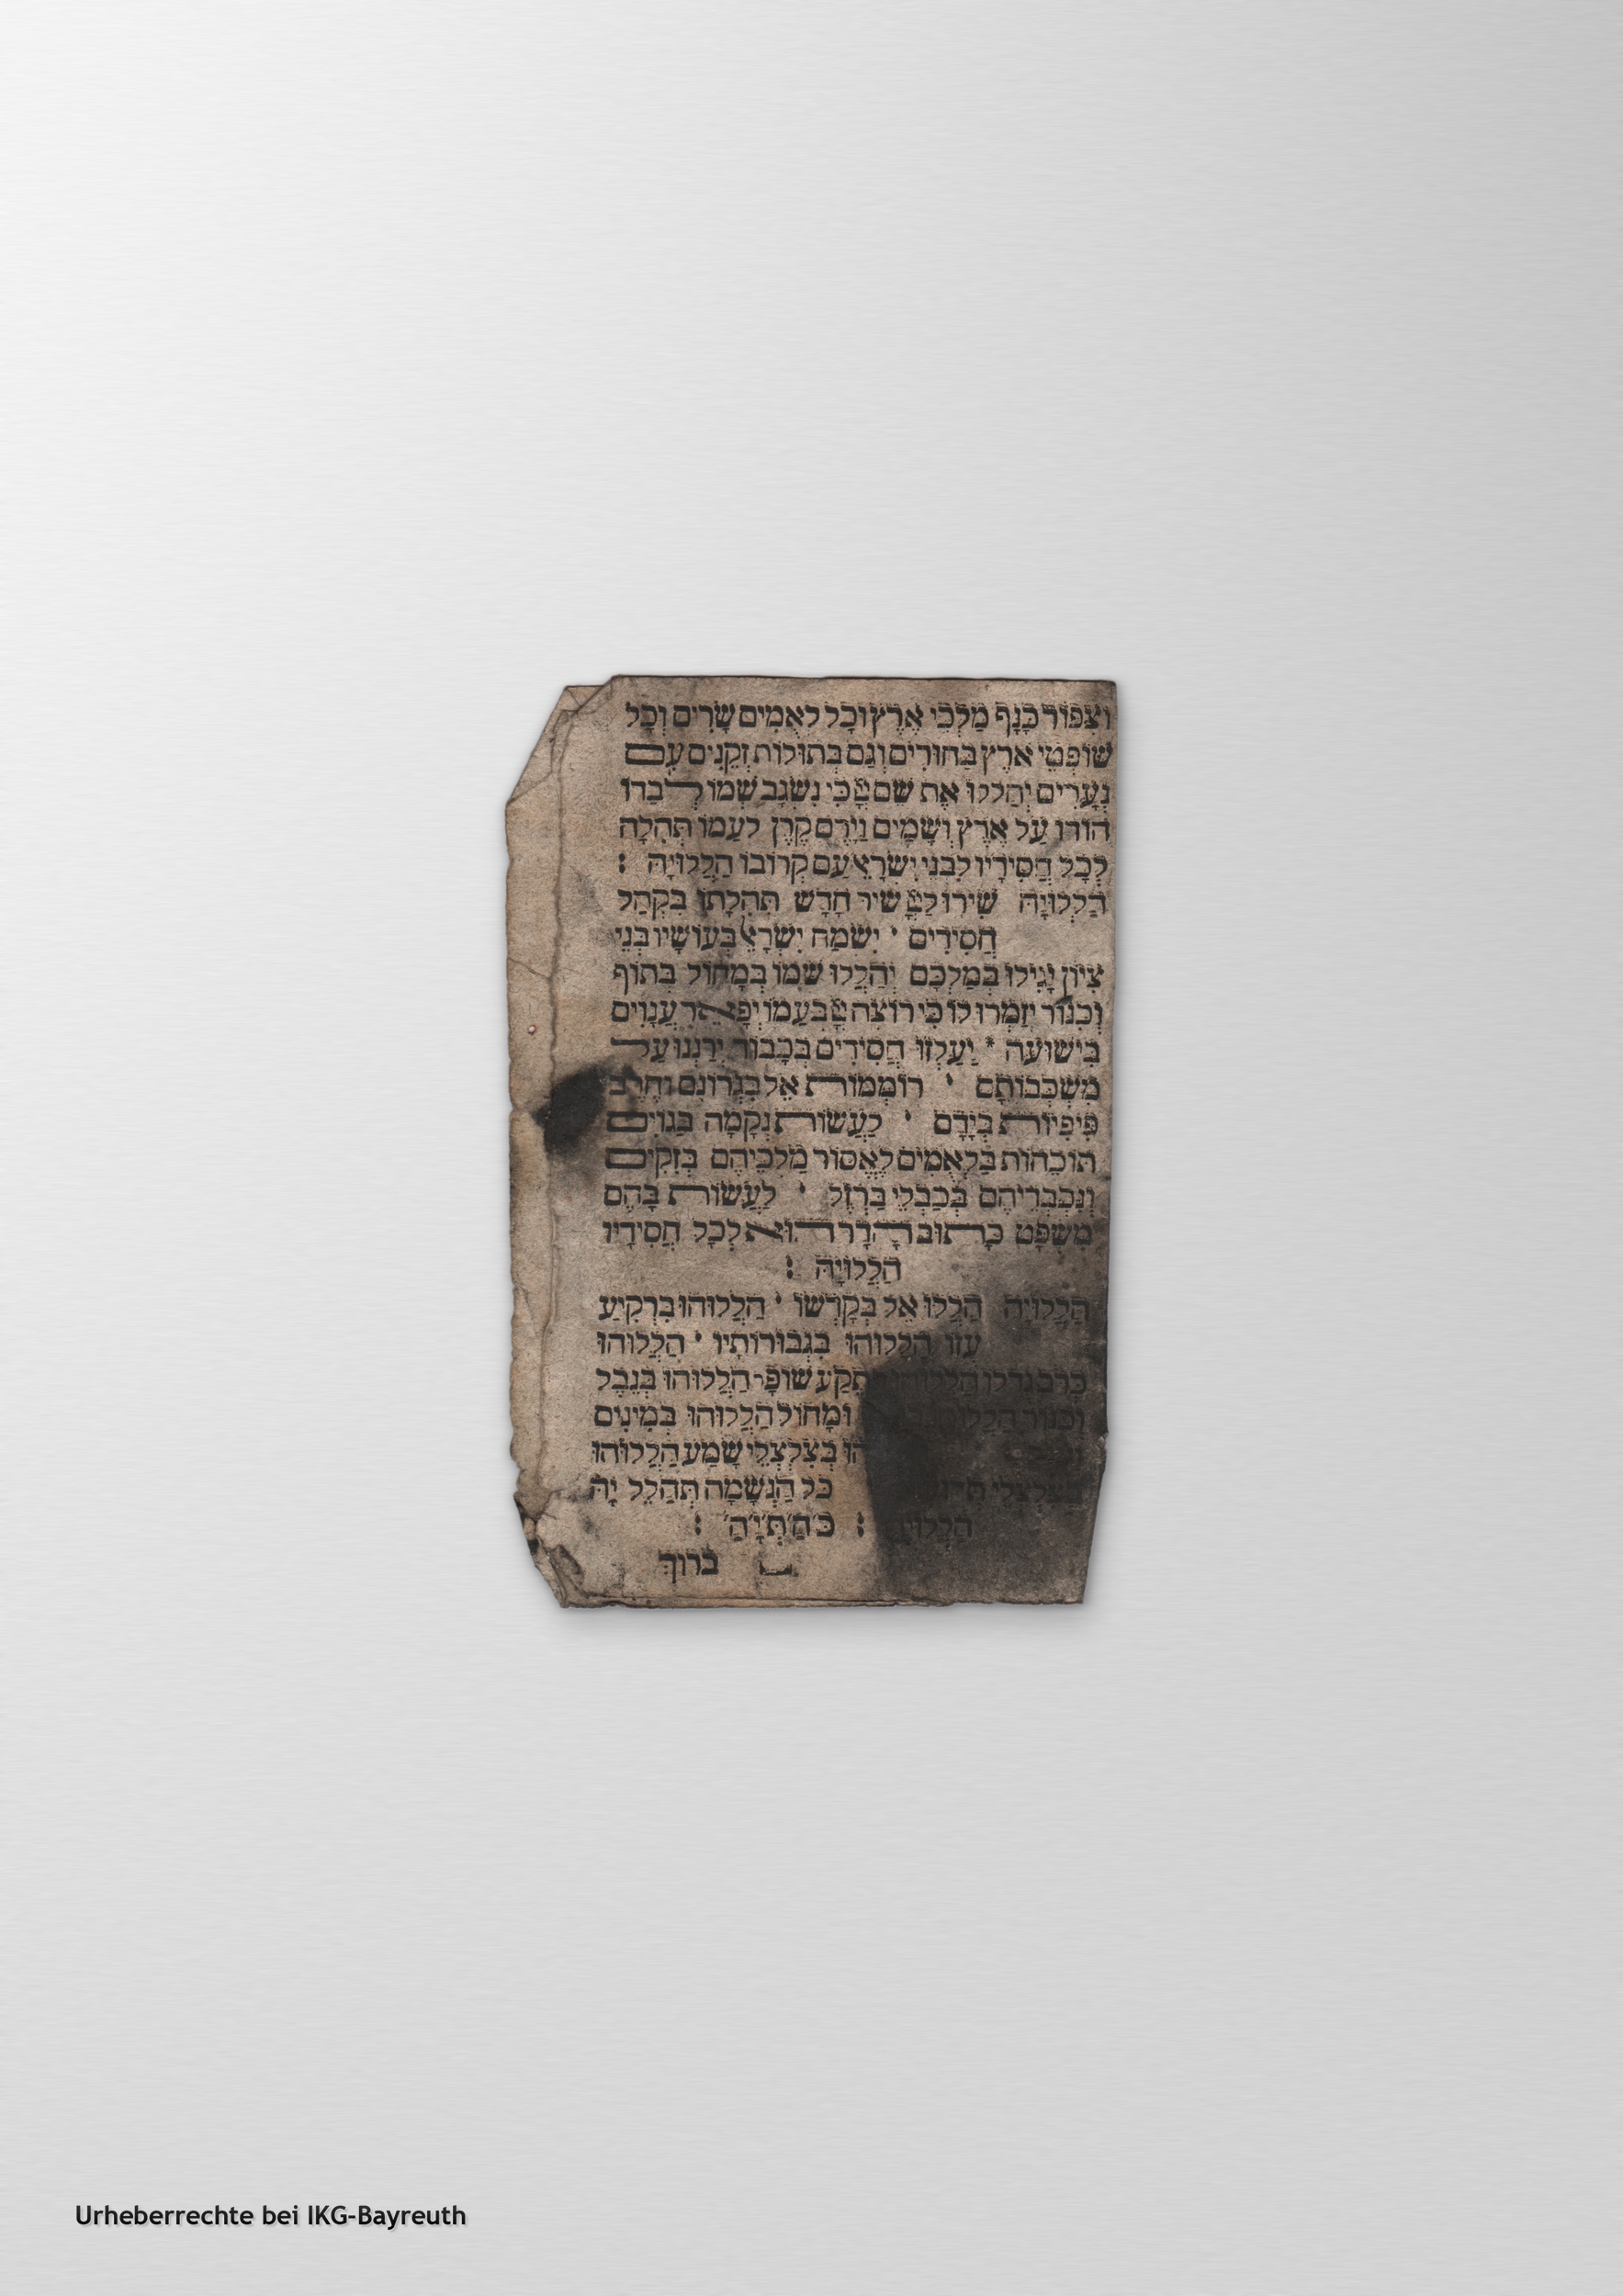 וצפור כנף מלכי ארץ וכל לאמים שרים וכל
שופטי ארץ בחורים וגם בתולות זקנים עם
נערים יהללו את שם כי נשגב שמו לברו
הודו על ארץ ושמים וירם קרן לעמו תהלה
לכל חסידיו לבני ישראל עם קרובו הללויה :
הללויה שירו ליי שיר חדש תהלתו בקהל
חסידים ' ישמח ישראל בעושיו בני
ציון יגילו במלכם יהללו שמו במחול בתוף
וכנור יזמרו לו כי רוצה בעמו יפאר ענוים
בישועה * יעלזו חסידים בכבוד ירננו על
משכבותם ' רוממות אל בגרונם וחרב
פיפיות בידם ' לעשות נקמה בגוים
תוכחות בלאמים לאסור מלכיהם בזקים
ונכבדיהם בכבלי ברזל ' לעשות בהם
משפט כתוב הדר הוא לכל חסידיו
הללויה :
הללויה הללו אל בקדשו ' הללוהו ברקיע
עזו הללוהו בגבורותיו ' הללוהו
כרב גדלו הללוהו בתקע שופר הללוהו בנבל
וכנור הללוהו ומחול הללוהו במינים
בצלצלי שמע הללוהו
בצלצלי כל הנשמה תהלל יה
הללויה : כ'ה'ת'י'ה' :
ברוך
Urheberrechte bei IKG-Bayreuth